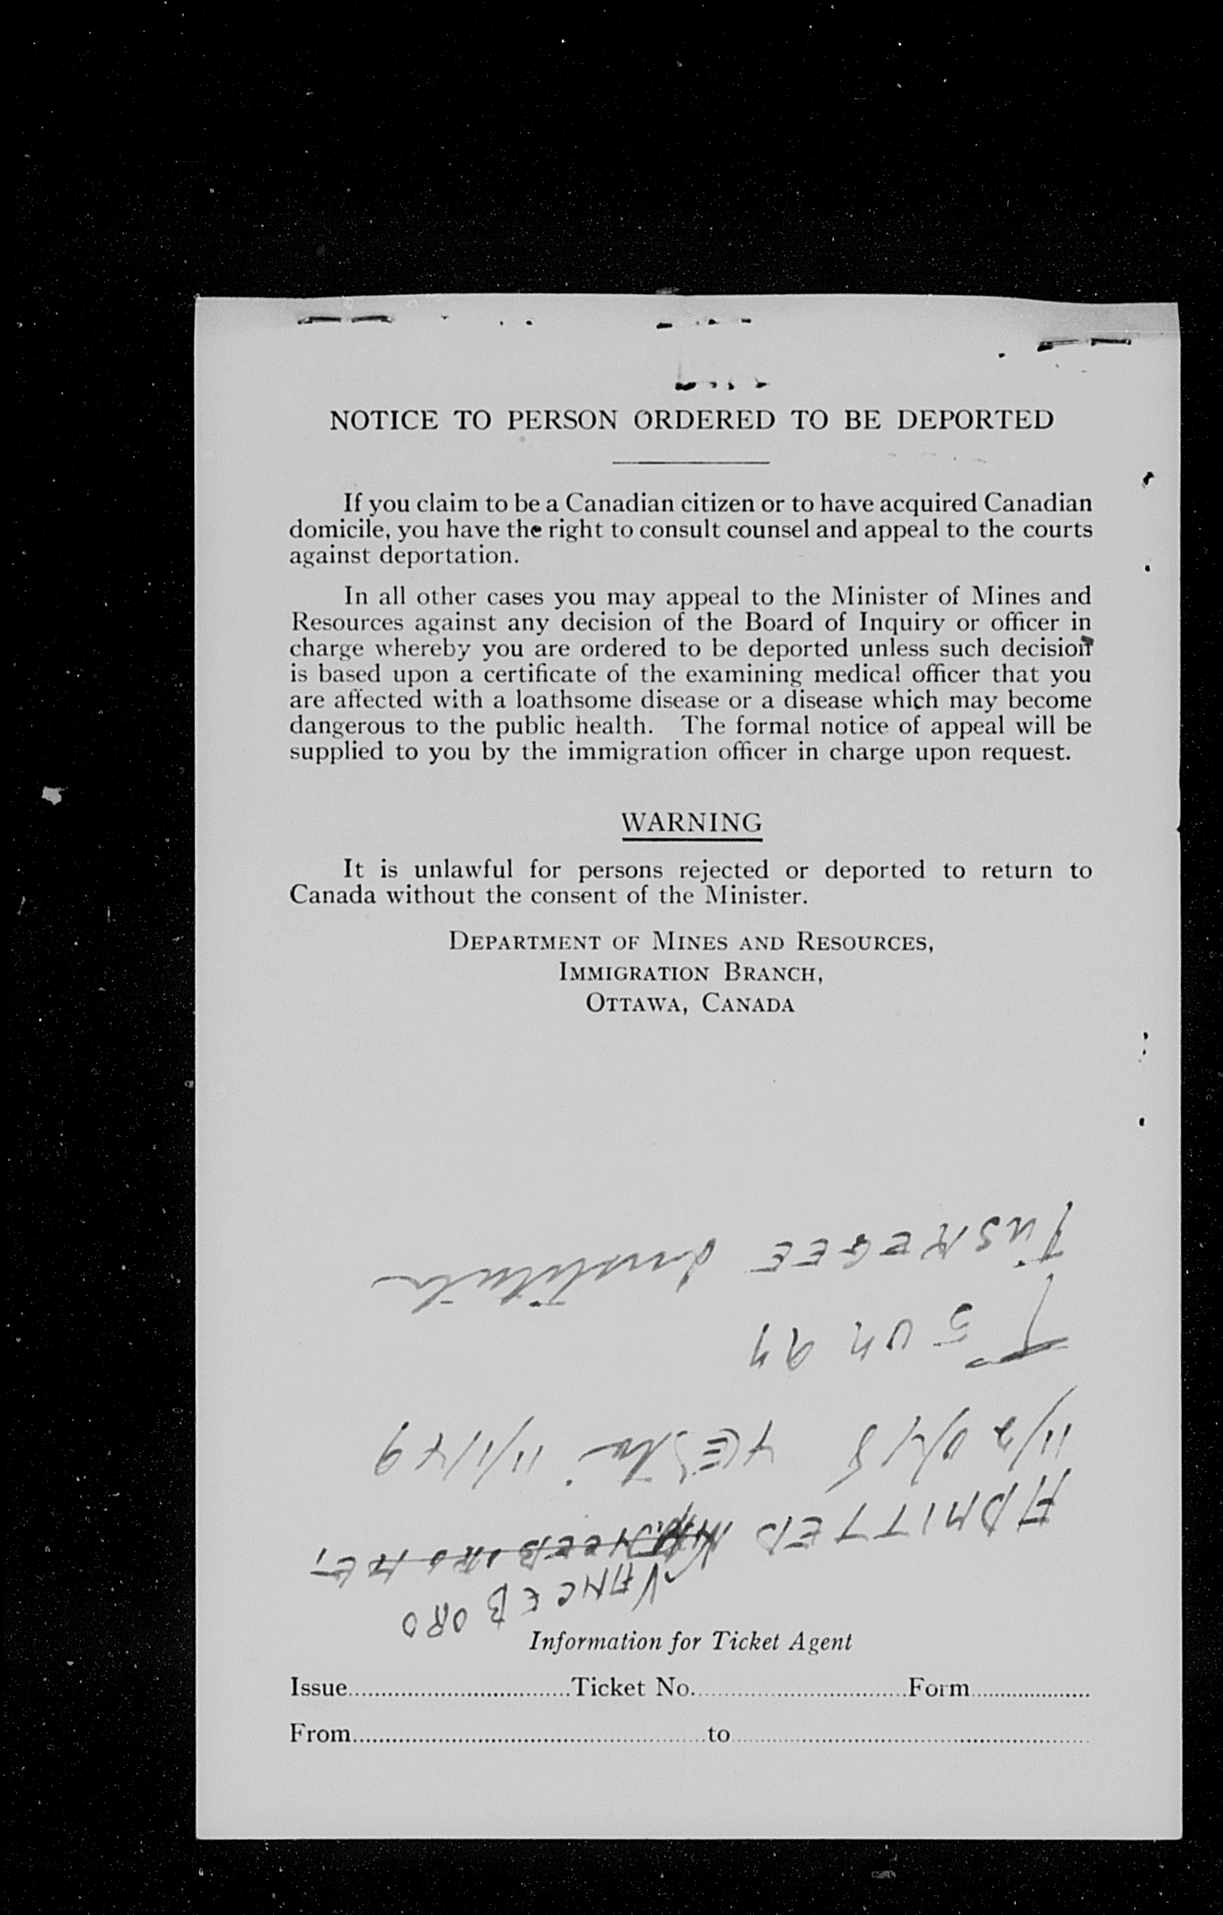 NOTICE TO PERSON ORDERED TO BE DEPORTED
If you claim to be a Canadian citizen or to have acquired Canadian
domicile, you have the right to consult counsel and appeal to the courts
against deportation.
In all other cases you may appeal to the Minister of Mines and
Resources against any decision of the Board of Inquiry or officer in
charge whereby you are ordered to be deported unless such decision
is based upon a certificate of the examining medical officer that you
are affected with a loathsome disease or a disease which may become
dangerous to the public health. The formal notice of appeal will be
supplied to you by the immigration officer in charge upon request.
WARNING
It is unlawful for persons rejected or deported to return to
Canada without the consent of the Minister.
DEPARTMENT OF MINES AND RESOURCES,
IMMIGRATION BRANCH,
OTTAWA, CANADA
VANCEBORO
ADMITTED
11/1/49
TUSKEGEE Institute
Information for Ticket Agent
Issue Ticket No. Form
From to